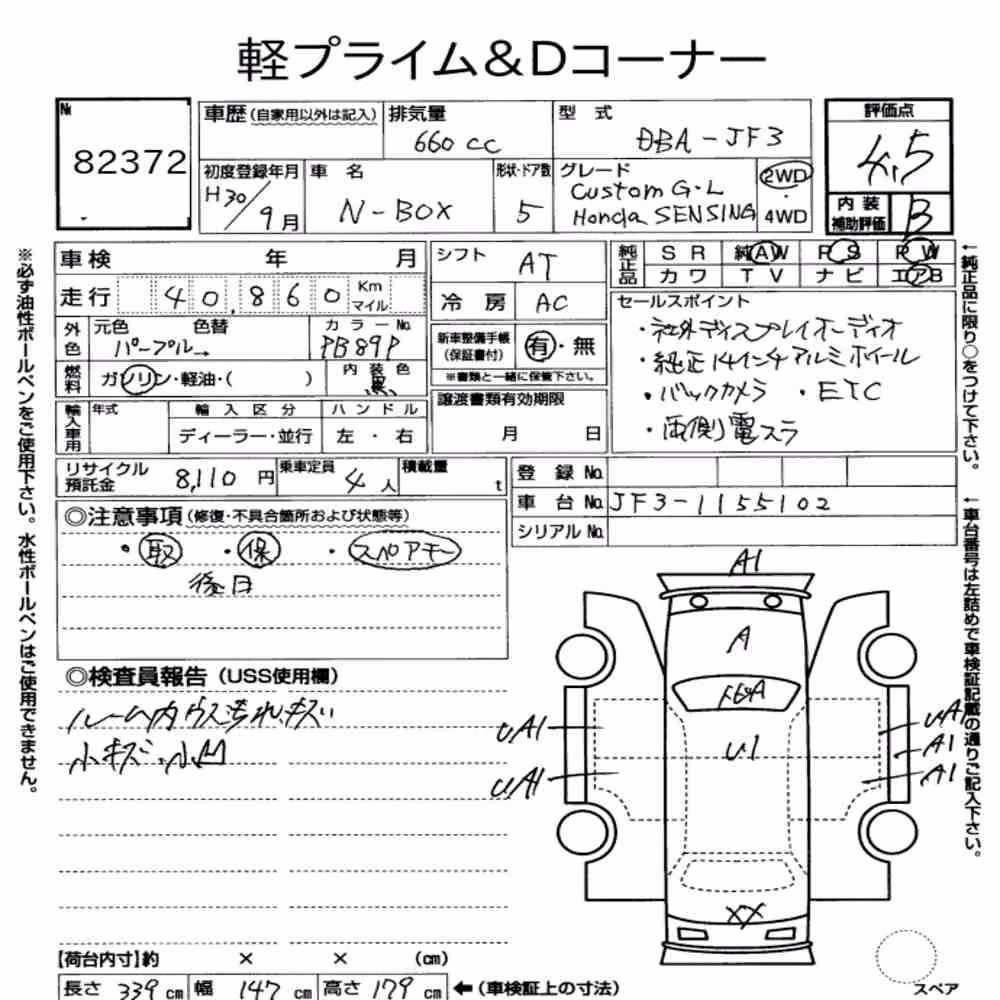 軽プライム&Dコーナー
№
82372
車歴(自家用以外は記入)
排気量
660 cc
型 式
DBA-JF3
評価点
4.5
初度登録年月
H30/9月
車 名
N-BOX
形状・ドア数
5
グレード
Custom G・L
Honda SENSING
2WD
・
4WD
内 装
補助評価
B
車検 年 月
走行 40,860 Km
マイル
シフト AT
冷 房 AC
純正品
S R 純AW P S P W
カワ T V ナビ エアB
外色
元色 色替
パープル→
カラーNo.
PB89P
燃料
ガソリン・軽油・( )
内 装 色
黒
新車整備手帳
(保証書付)
有・無
※書類と一緒に保管下さい。
セールスポイント
・社外ディスプレイオーディオ
・純正14インチアルミホイール
・バックカメラ ・ETC
・両側電スラ
輸入車用
年式
輸 入 区 分
ディーラー・並行
ハ ン ド ル
左 ・ 右
譲渡書類有効期限
月 日
リサイクル
預託金
8,110 円
乗車定員
4 人
積載量
t
登 録 No.
車 台 No. JF3-1155102
シリアル No.
◎注意事項(修復・不具合箇所および状態等)
・取 ・保 ・スペアキー
後日
◎検査員報告(USS使用欄)
ルーム内ウス汚れ・キズ
小キズ・小凹
A1
A
U1
UA1
UA1
UA1
A1
A1
XX
【荷台内寸】約 × × (cm)
長さ 339 cm 幅 147 cm 高さ 179 cm ←(車検証上の寸法)
スペア
※必ず油性ボールペンをご使用下さい。水性ボールペンはご使用できません。
←純正品に限り○をつけて下さい。
←車台番号は左詰めで車検証記載の通りご記入下さい。